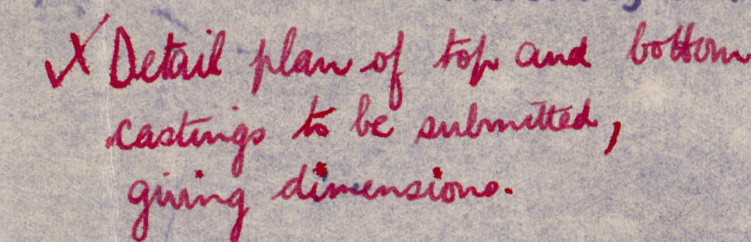 ✓X Detail plan of top and bottom
castings to be submitted,
giving dimensions.